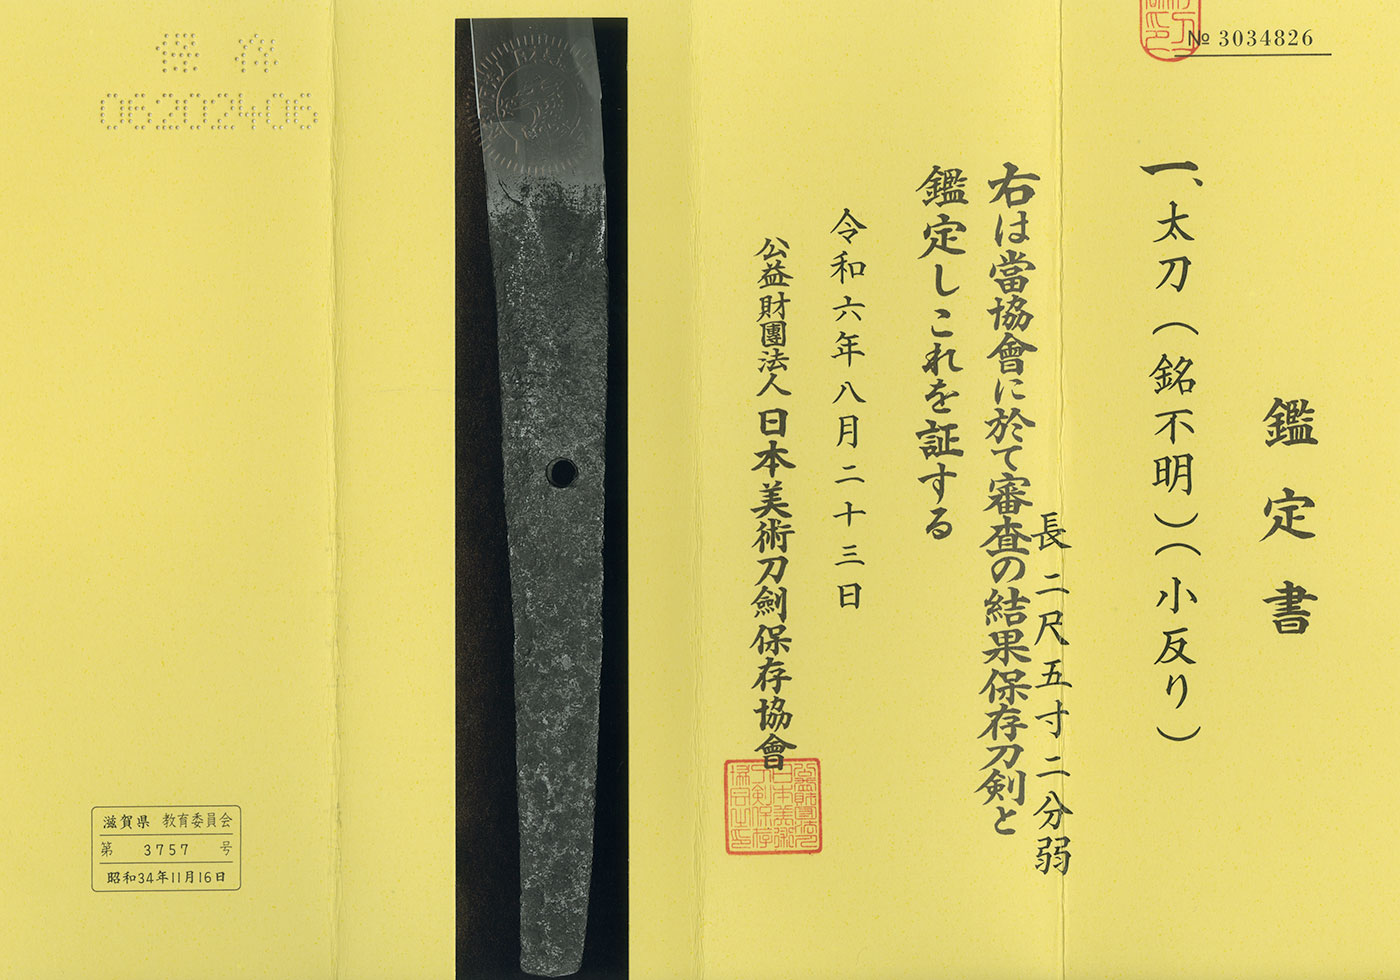 № 3034826
鑑定書
一、太刀（銘不明）（小反り）
長二尺五寸二分弱
右は當協會に於て審査の結果保存刀剣と
鑑定しこれを証する
令和六年八月二十三日
公益財團法人日本美術刀劍保存協會
保存
06202406
滋賀県 教育委員会
第 3757 号
昭和34年11月16日